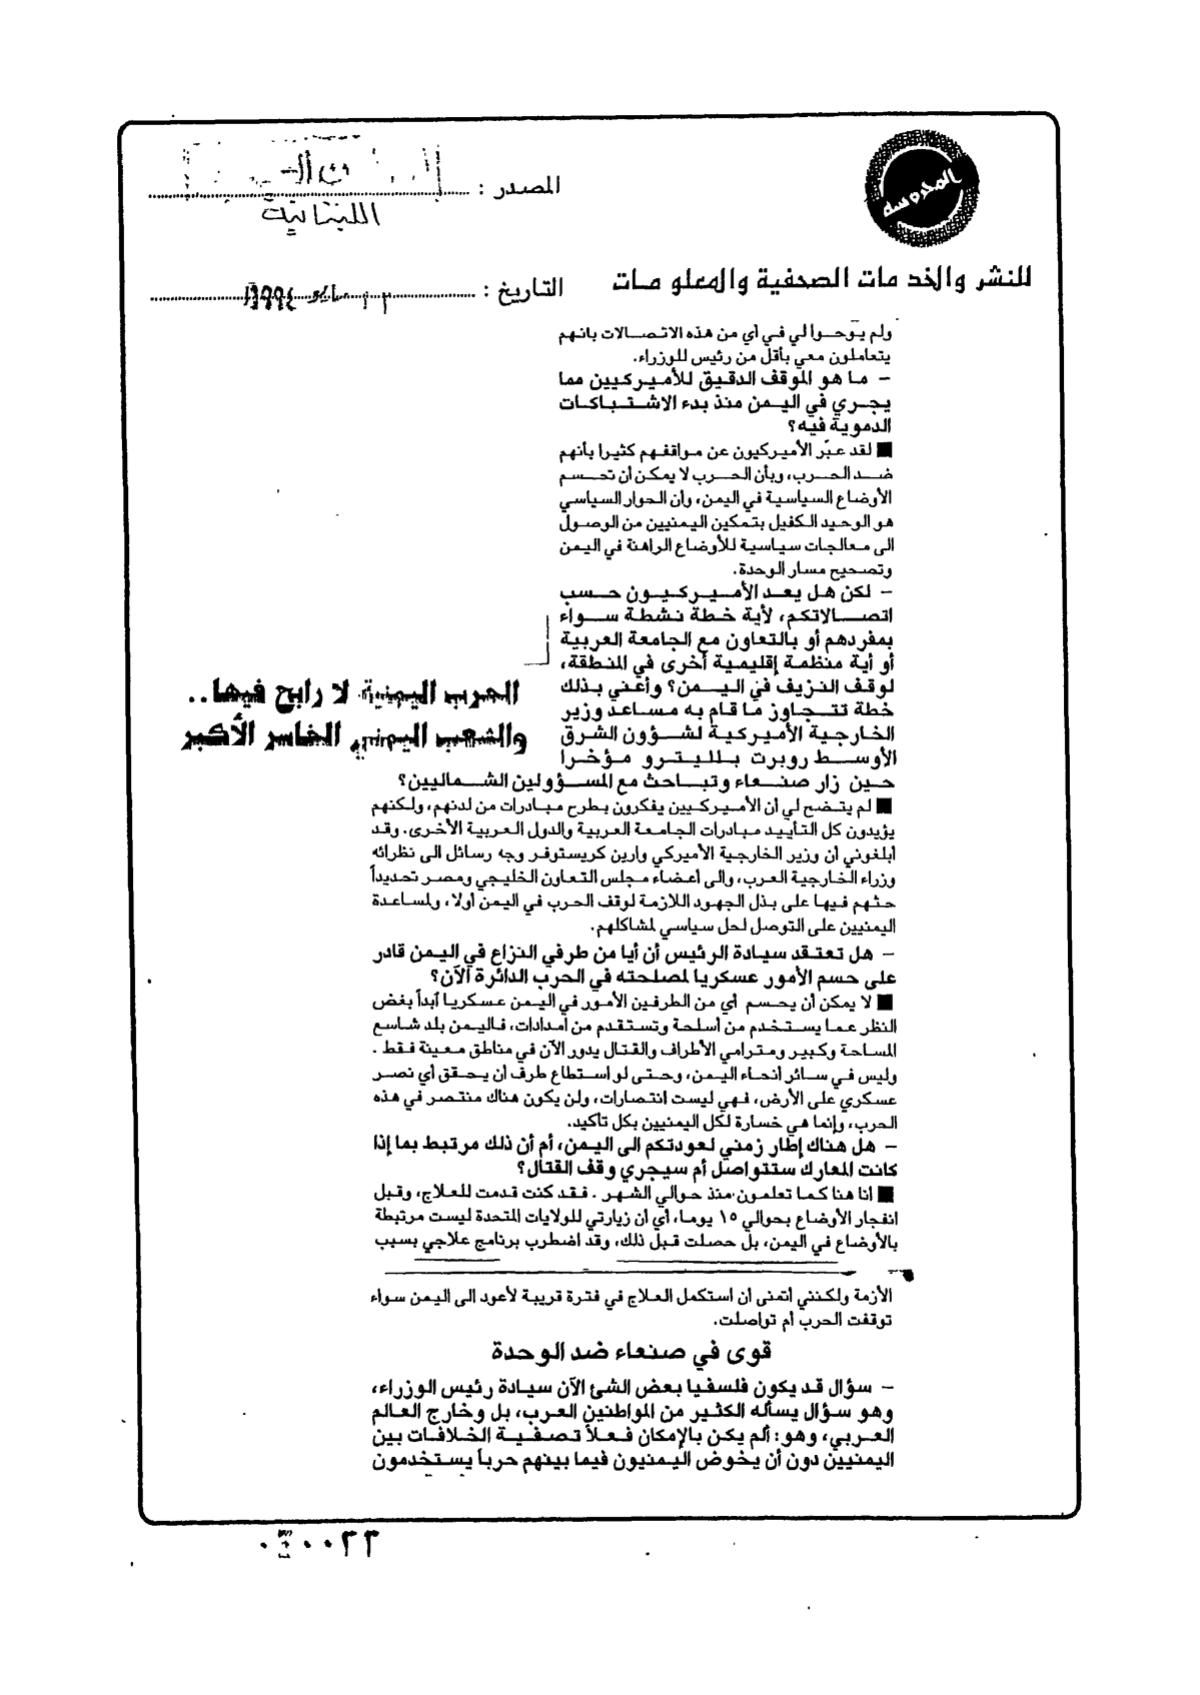 المحروسة
المصدر :
اللبنانية
للنشر والخدمات الصحفية والمعلومات
التاريخ : مايو ١٩٩٤
ولم يوحوا لي في أي من هذه الاتصالات بانهم
يتعاملون معي بأقل من رئيس للوزراء.
– ما هو الموقف الدقيق للأميركيين مما
يجري في اليمن منذ بدء الاشتباكات
الدموية فيه؟
■ لقد عبّر الأميركيون عن مواقفهم كثيرا بأنهم
ضد الحرب، وبأن الحرب لا يمكن أن تحسم
الأوضاع السياسية في اليمن، وأن الحوار السياسي
هو الوحيد الكفيل بتمكين اليمنيين من الوصول
الى معالجات سياسية للأوضاع الراهنة في اليمن
وتصحيح مسار الوحدة.
– لكن هل يعد الأميركيون حسب
اتصالاتكم، لأية خطة نشطة سواء
بمفردهم أو بالتعاون مع الجامعة العربية
أو أية منظمة إقليمية أخرى في المنطقة،
لوقف النزيف في اليمن؟ وأعني بذلك
خطة تتجاوز ما قام به مساعد وزير
الخارجية الأميركية لشؤون الشرق
الأوسط روبرت بلليترو مؤخرا
حين زار صنعاء وتباحث مع المسؤولين الشماليين؟
الحرب اليمنية لا رابح فيها..
والشعب اليمني الخاسر الأكبر
■ لم يتضح لي أن الأميركيين يفكرون بطرح مبادرات من لدنهم، ولكنهم
يؤيدون كل التأييد مبادرات الجامعة العربية والدول العربية الأخرى. وقد
ابلغوني أن وزير الخارجية الأميركي وارين كريستوفر وجه رسائل الى نظرائه
وزراء الخارجية العرب، والى اعضاء مجلس التعاون الخليجي ومصر تحديداً
حثهم فيها على بذل الجهود اللازمة لوقف الحرب في اليمن أولا، ولمساعدة
اليمنيين على التوصل لحل سياسي لمشاكلهم.
– هل تعتقد سيادة الرئيس أن أيا من طرفي النزاع في اليمن قادر
على حسم الأمور عسكريا لمصلحته في الحرب الدائرة الآن؟
■ لا يمكن أن يحسم أي من الطرفين الأمور في اليمن عسكريا أبداً بغض
النظر عما يستخدم من أسلحة وتستقدم من امدادات، فاليمن بلد شاسع
المساحة وكبير ومترامي الأطراف والقتال يدور الآن في مناطق معينة فقط .
وليس في سائر أنحاء اليمن، وحتى لو استطاع طرف ان يحقق أي نصر
عسكري على الأرض، فهي ليست انتصارات، ولن يكون هناك منتصر في هذه
الحرب، وإنما هي خسارة لكل اليمنيين بكل تأكيد.
– هل هناك إطار زمني لعودتكم الى اليمن، أم أن ذلك مرتبط بما إذا
كانت المعارك ستتواصل أم سيجري وقف القتال؟
■ انا هنا كما تعلمون منذ حوالي الشهر . فقد كنت قدمت للعلاج، وقبل
انفجار الأوضاع بحوالي ١٥ يوما، أي أن زيارتي للولايات المتحدة ليست مرتبطة
بالأوضاع في اليمن، بل حصلت قبل ذلك، وقد اضطرب برنامج علاجي بسبب
الأزمة ولكنني أتمنى ان استكمل العلاج في فترة قريبة لأعود الى اليمن سواء
توقفت الحرب أم تواصلت.
قوى في صنعاء ضد الوحدة
– سؤال قد يكون فلسفيا بعض الشئ الآن سيادة رئيس الوزراء،
وهو سؤال يسأله الكثير من المواطنين العرب، بل وخارج العالم
العربي، وهو: ألم يكن بالإمكان فعلاً تصفية الخلافات بين
اليمنيين دون أن يخوض اليمنيون فيما بينهم حرباً يستخدمون